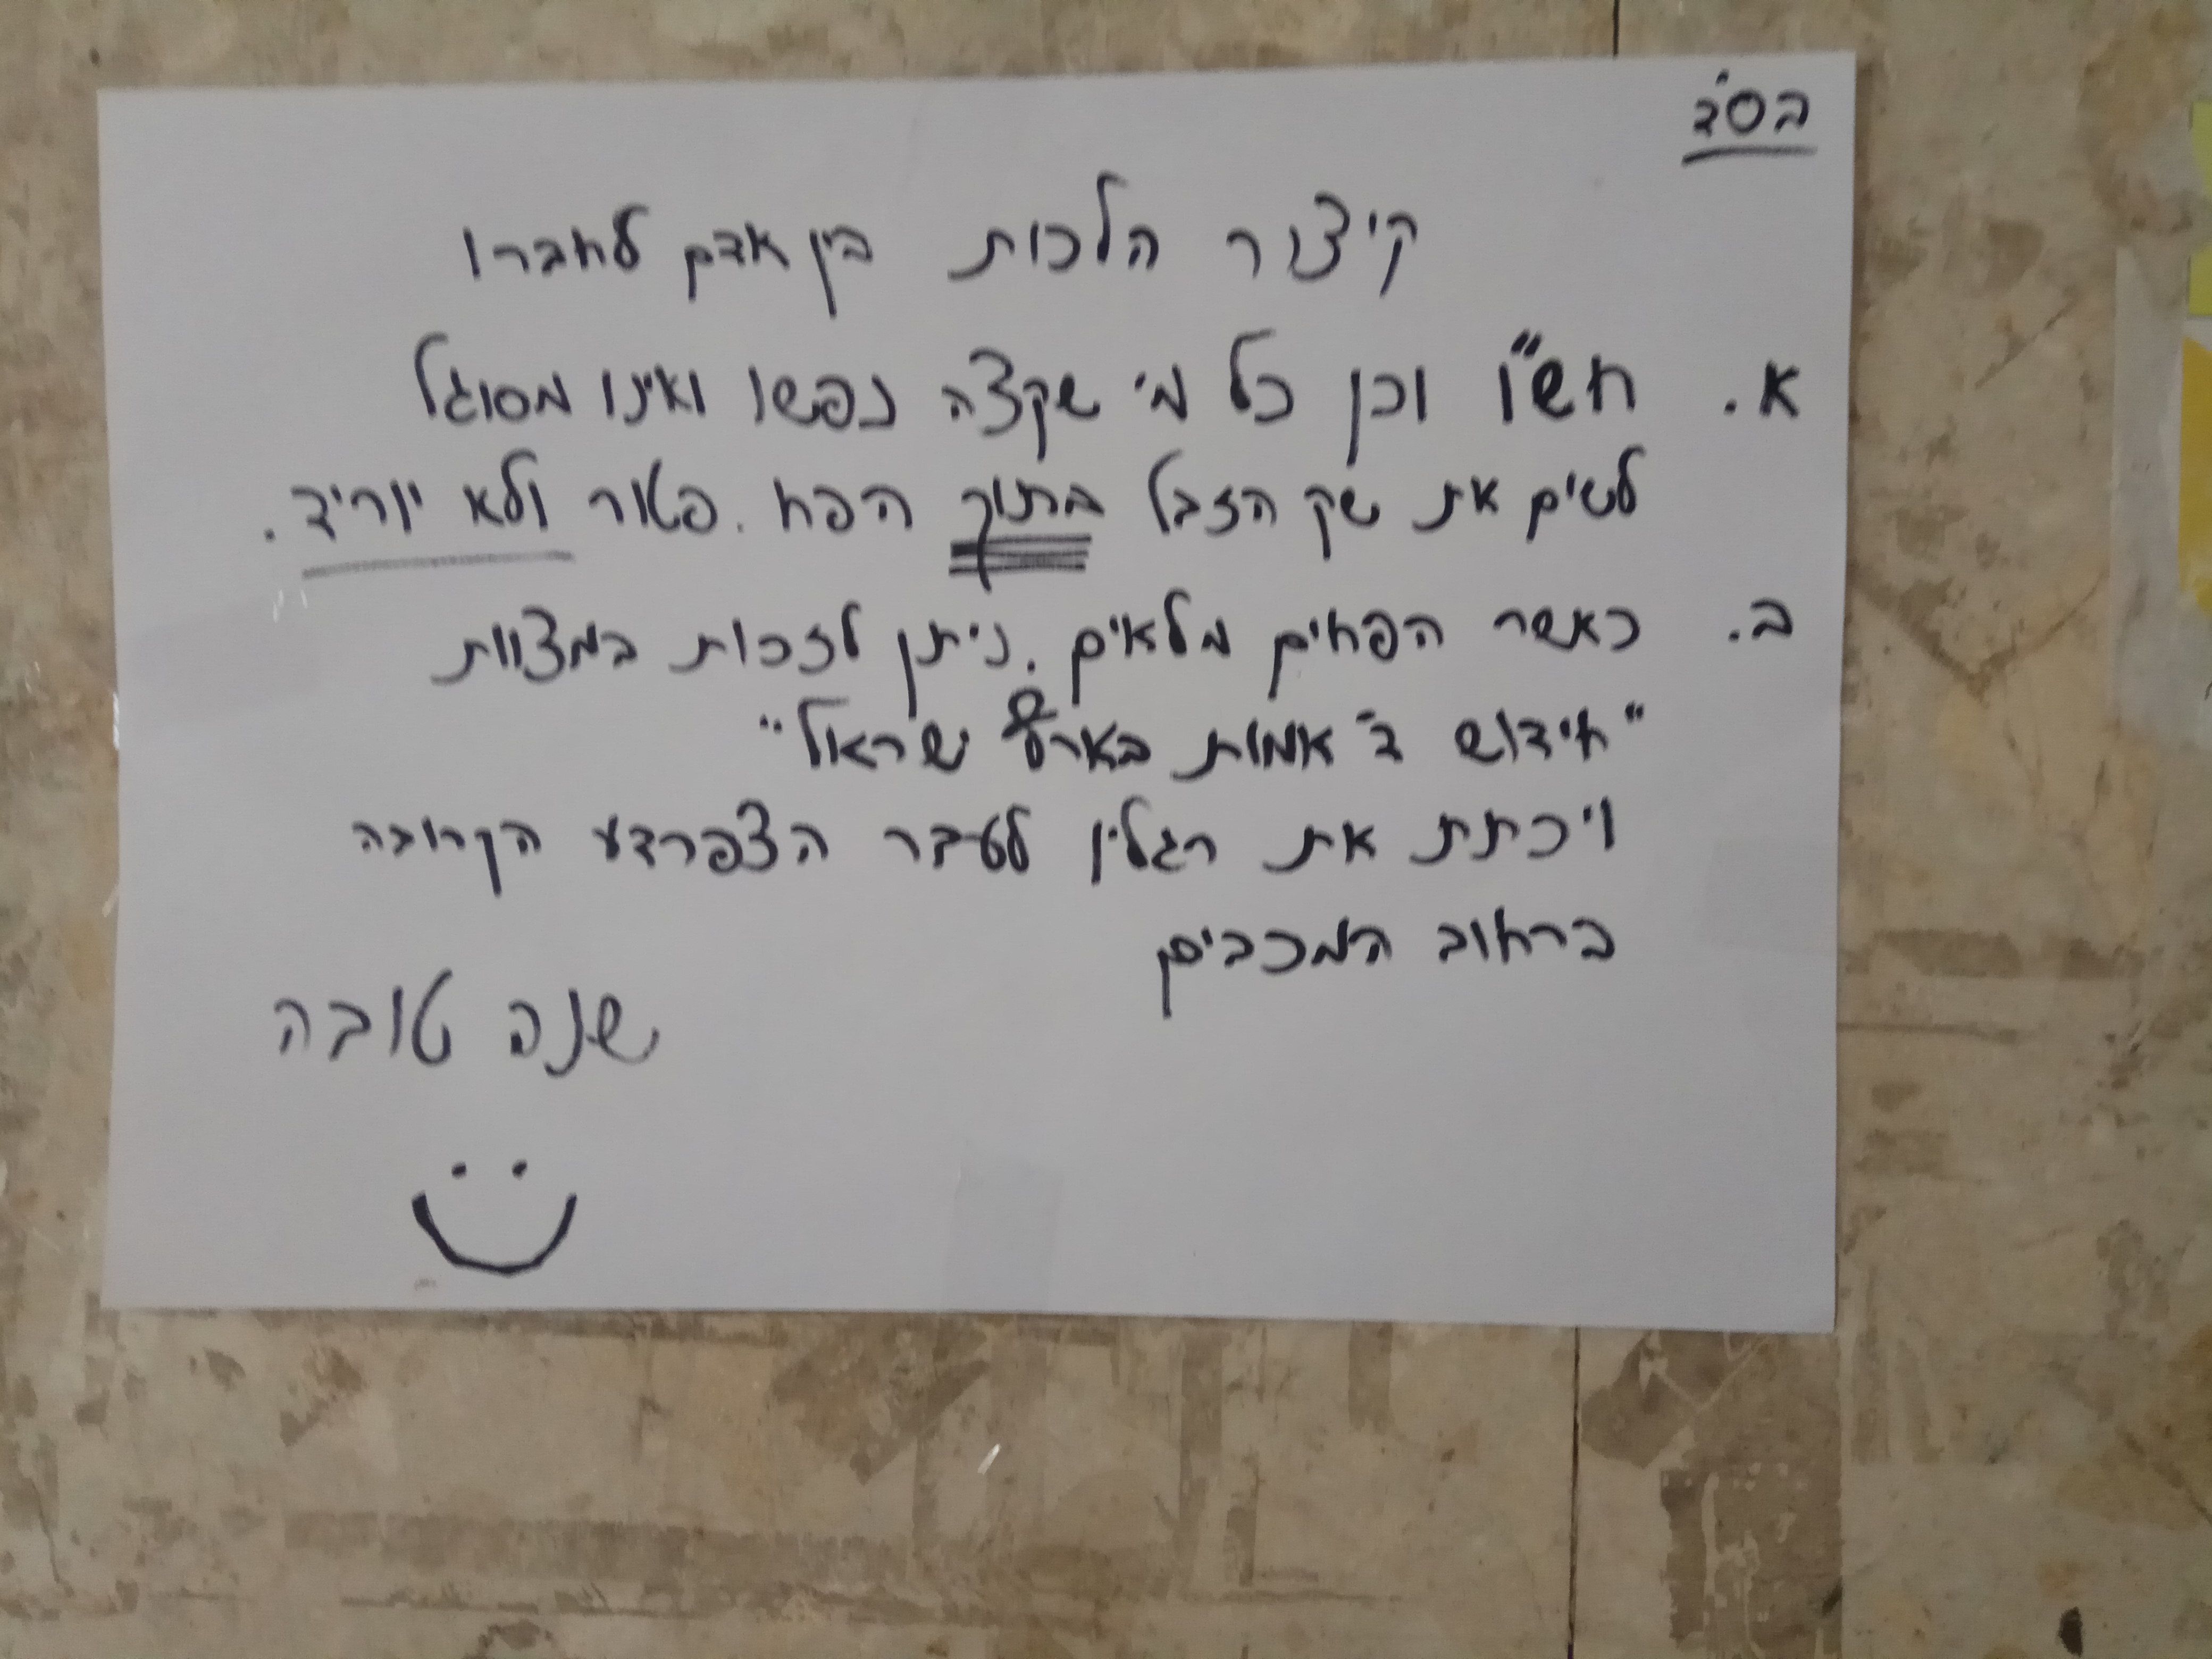 בס"ד
קיצור הלכות בין אדם לחברו
א. חש"ו וכן כל מי שקצה נפשו ואינו מסוגל
לשים את שק הזבל בתוך הפח. פטור ולא יוריד.
ב. כאשר הפחים מלאים. ניתן לזכות במצוות
"חידוש ד' אמות בארץ ישראל"
ויכתת את רגליו לעבר הצפרדע הקרובה
ברחוב המכבים
שנה טובה